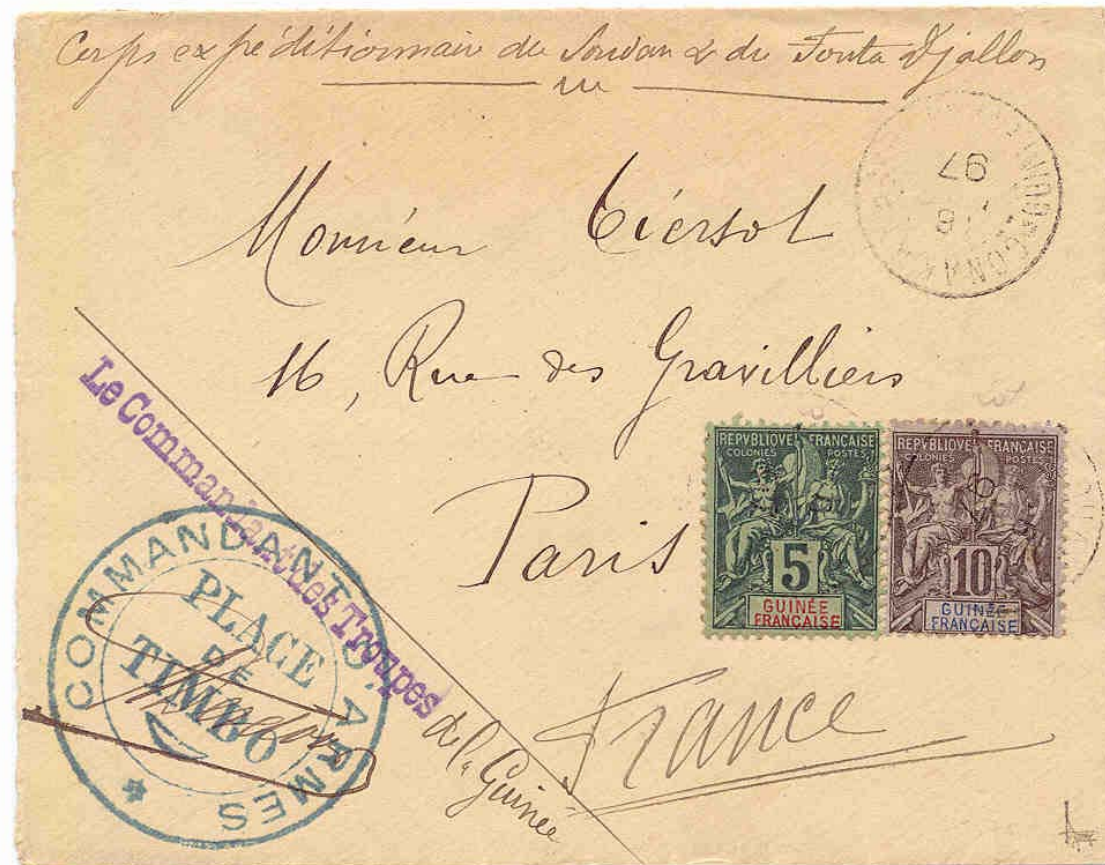 Corps expéditionnaire du Soudan & du Fouta Djallon
97
CONAKRY
Monsieur Tiersot
16, Rue des Gravilliers
Paris
France
Le Commandant des Troupes
de la Guinée
COMMANDANT D'ARMES
PLACE
DE
TIMBO
REPVBLIQVE FRANÇAISE
COLONIES POSTES
5
GUINÉE
FRANÇAISE
REPVBLIQVE FRANÇAISE
COLONIES POSTES
10
GUINÉE
FRANÇAISE